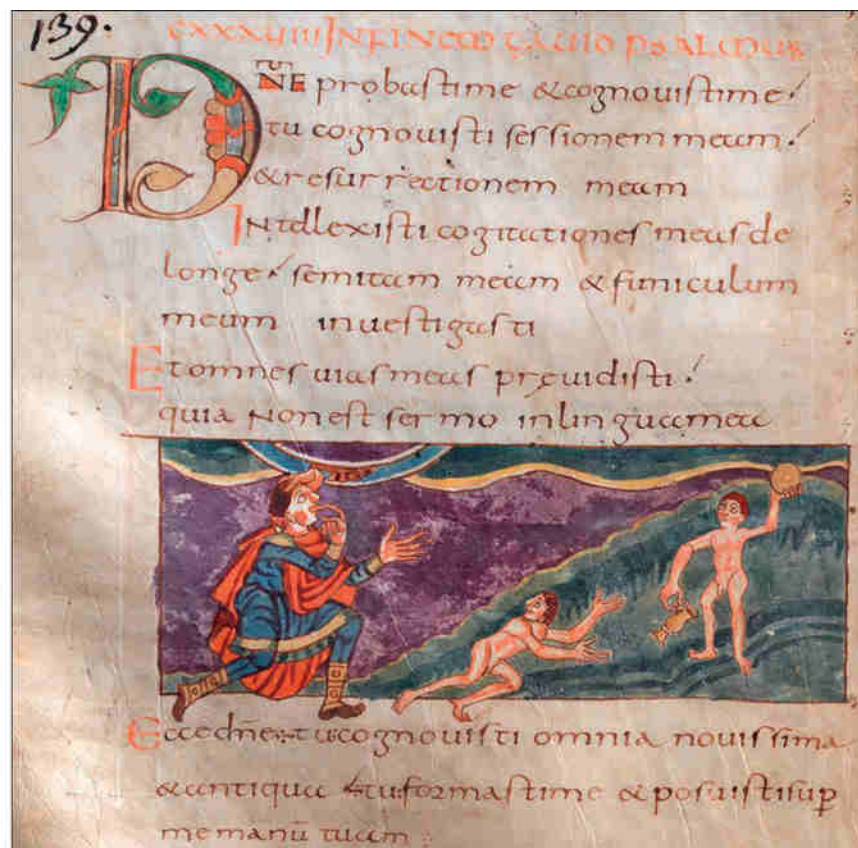 139.
CXXXVIIII IN FINEM DAVID PSALMUS
DNE probasti me & cognouisti me
tu cognouisti sessionem meam
& resurrectionem meam
Intellexisti cogitationes meas de
longe semitam meam & funiculum
meum inuestigasti
Et omnes uias meas preuidisti
quia non est sermo in lingua mea
Ecce dne tu cognouisti omnia nouissima
& antiqua tu formasti me & posuisti sup
me manu tuam